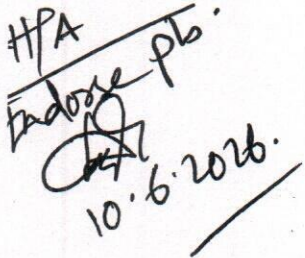 HPA
Endorse pls.
10.6.2026.